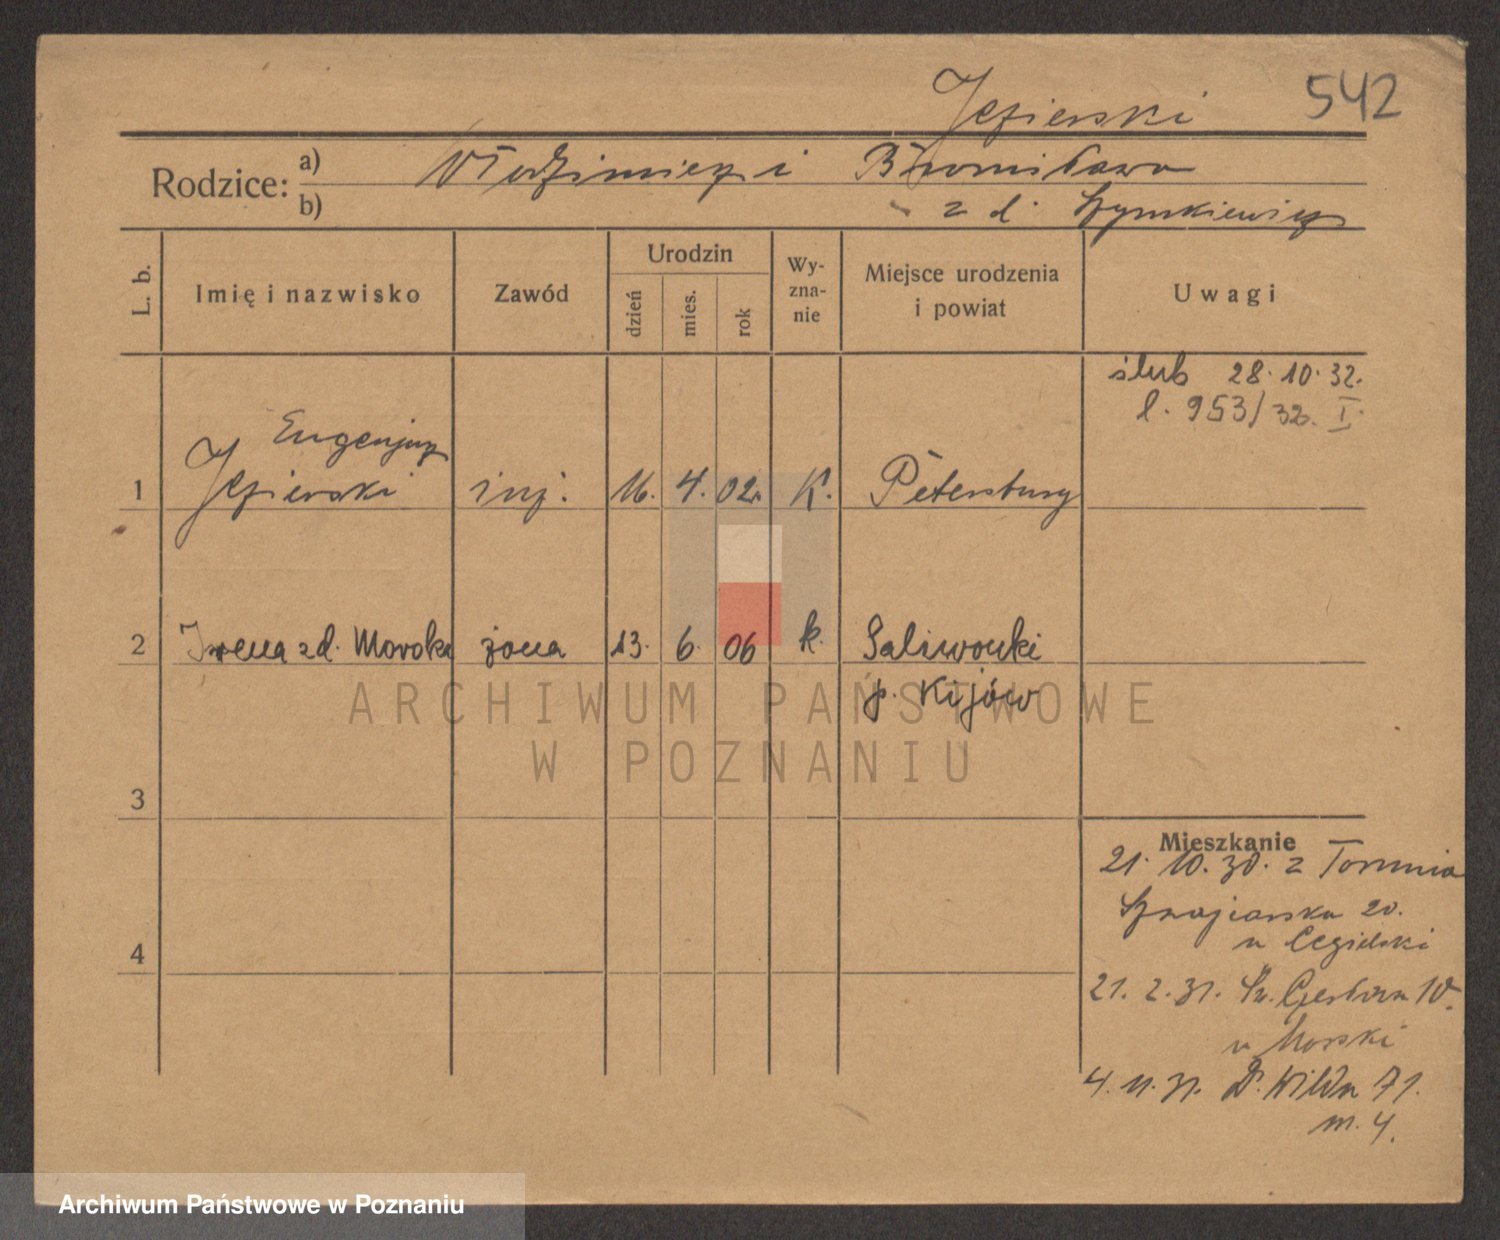 Jezierski 542
Rodzice: a) Włodzimierz i Bronisława
b) z d. Szymkiewicz
L. b. Imię i nazwisko Zawód Urodzin dzień mies. rok Wy-zna-nie Miejsce urodzenia i powiat Uwagi
ślub 28.10.32.
l. 953/32. I.
Eugenjusz
1 Jezierski inż. 16. 4. 02. K. Petersburg
2 Irena z d. Moroka żona 13. 6. 06 k. Saliwonki
p. Kijów
ARCHIWUM PAŃSTWOWE
W POZNANIU
3
Mieszkanie
21.10.30. z Torunia
20.
4
u Cegielski
21.2.31. Sw. Czesława 10.
u Morski
4.11.31. D. Wilda 71.
m. 4.
Archiwum Państwowe w Poznaniu